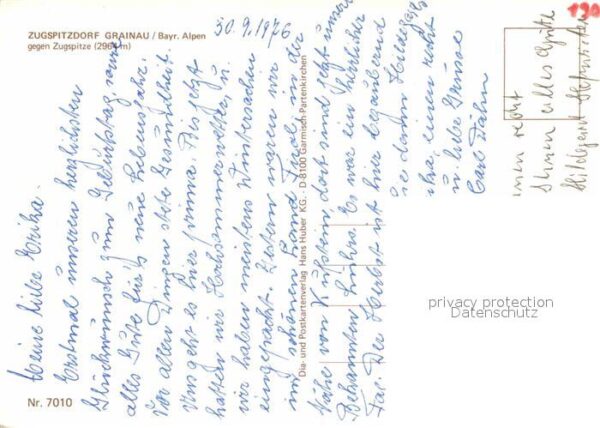 ZUGSPITZDORF GRAINAU / Bayr. Alpen
gegen Zugspitze (2964 m)
30.9.1976
Meine liebe Erika.
Erstmal unseren herzlichsten
Glückwunsch zum Geburtstag, sowie
alles Gute für's neue Lebensjahr.
Vor allen Dingen stets Gesundheit.
Uns geht es hier prima. Bis jetzt
hatten wir Hochsommerwetter u.
wir haben meistens Wintersachen
eingepackt. Gestern waren wir
mit
schönen
in der
Nähe von Kufstein, dort sind jetzt unsere
Bekannten
Es war ein herrlicher
Tag. Der Herbst ist hier bezaubernd
u. liebe Grüsse
Carl Dähn
Ihnen recht
alles Gute
Hildegard
Dia- und Postkartenverlag Hans Huber KG., D-8100 Garmisch-Partenkirchen
Nr. 7010
130
privacy protection
Datenschutz